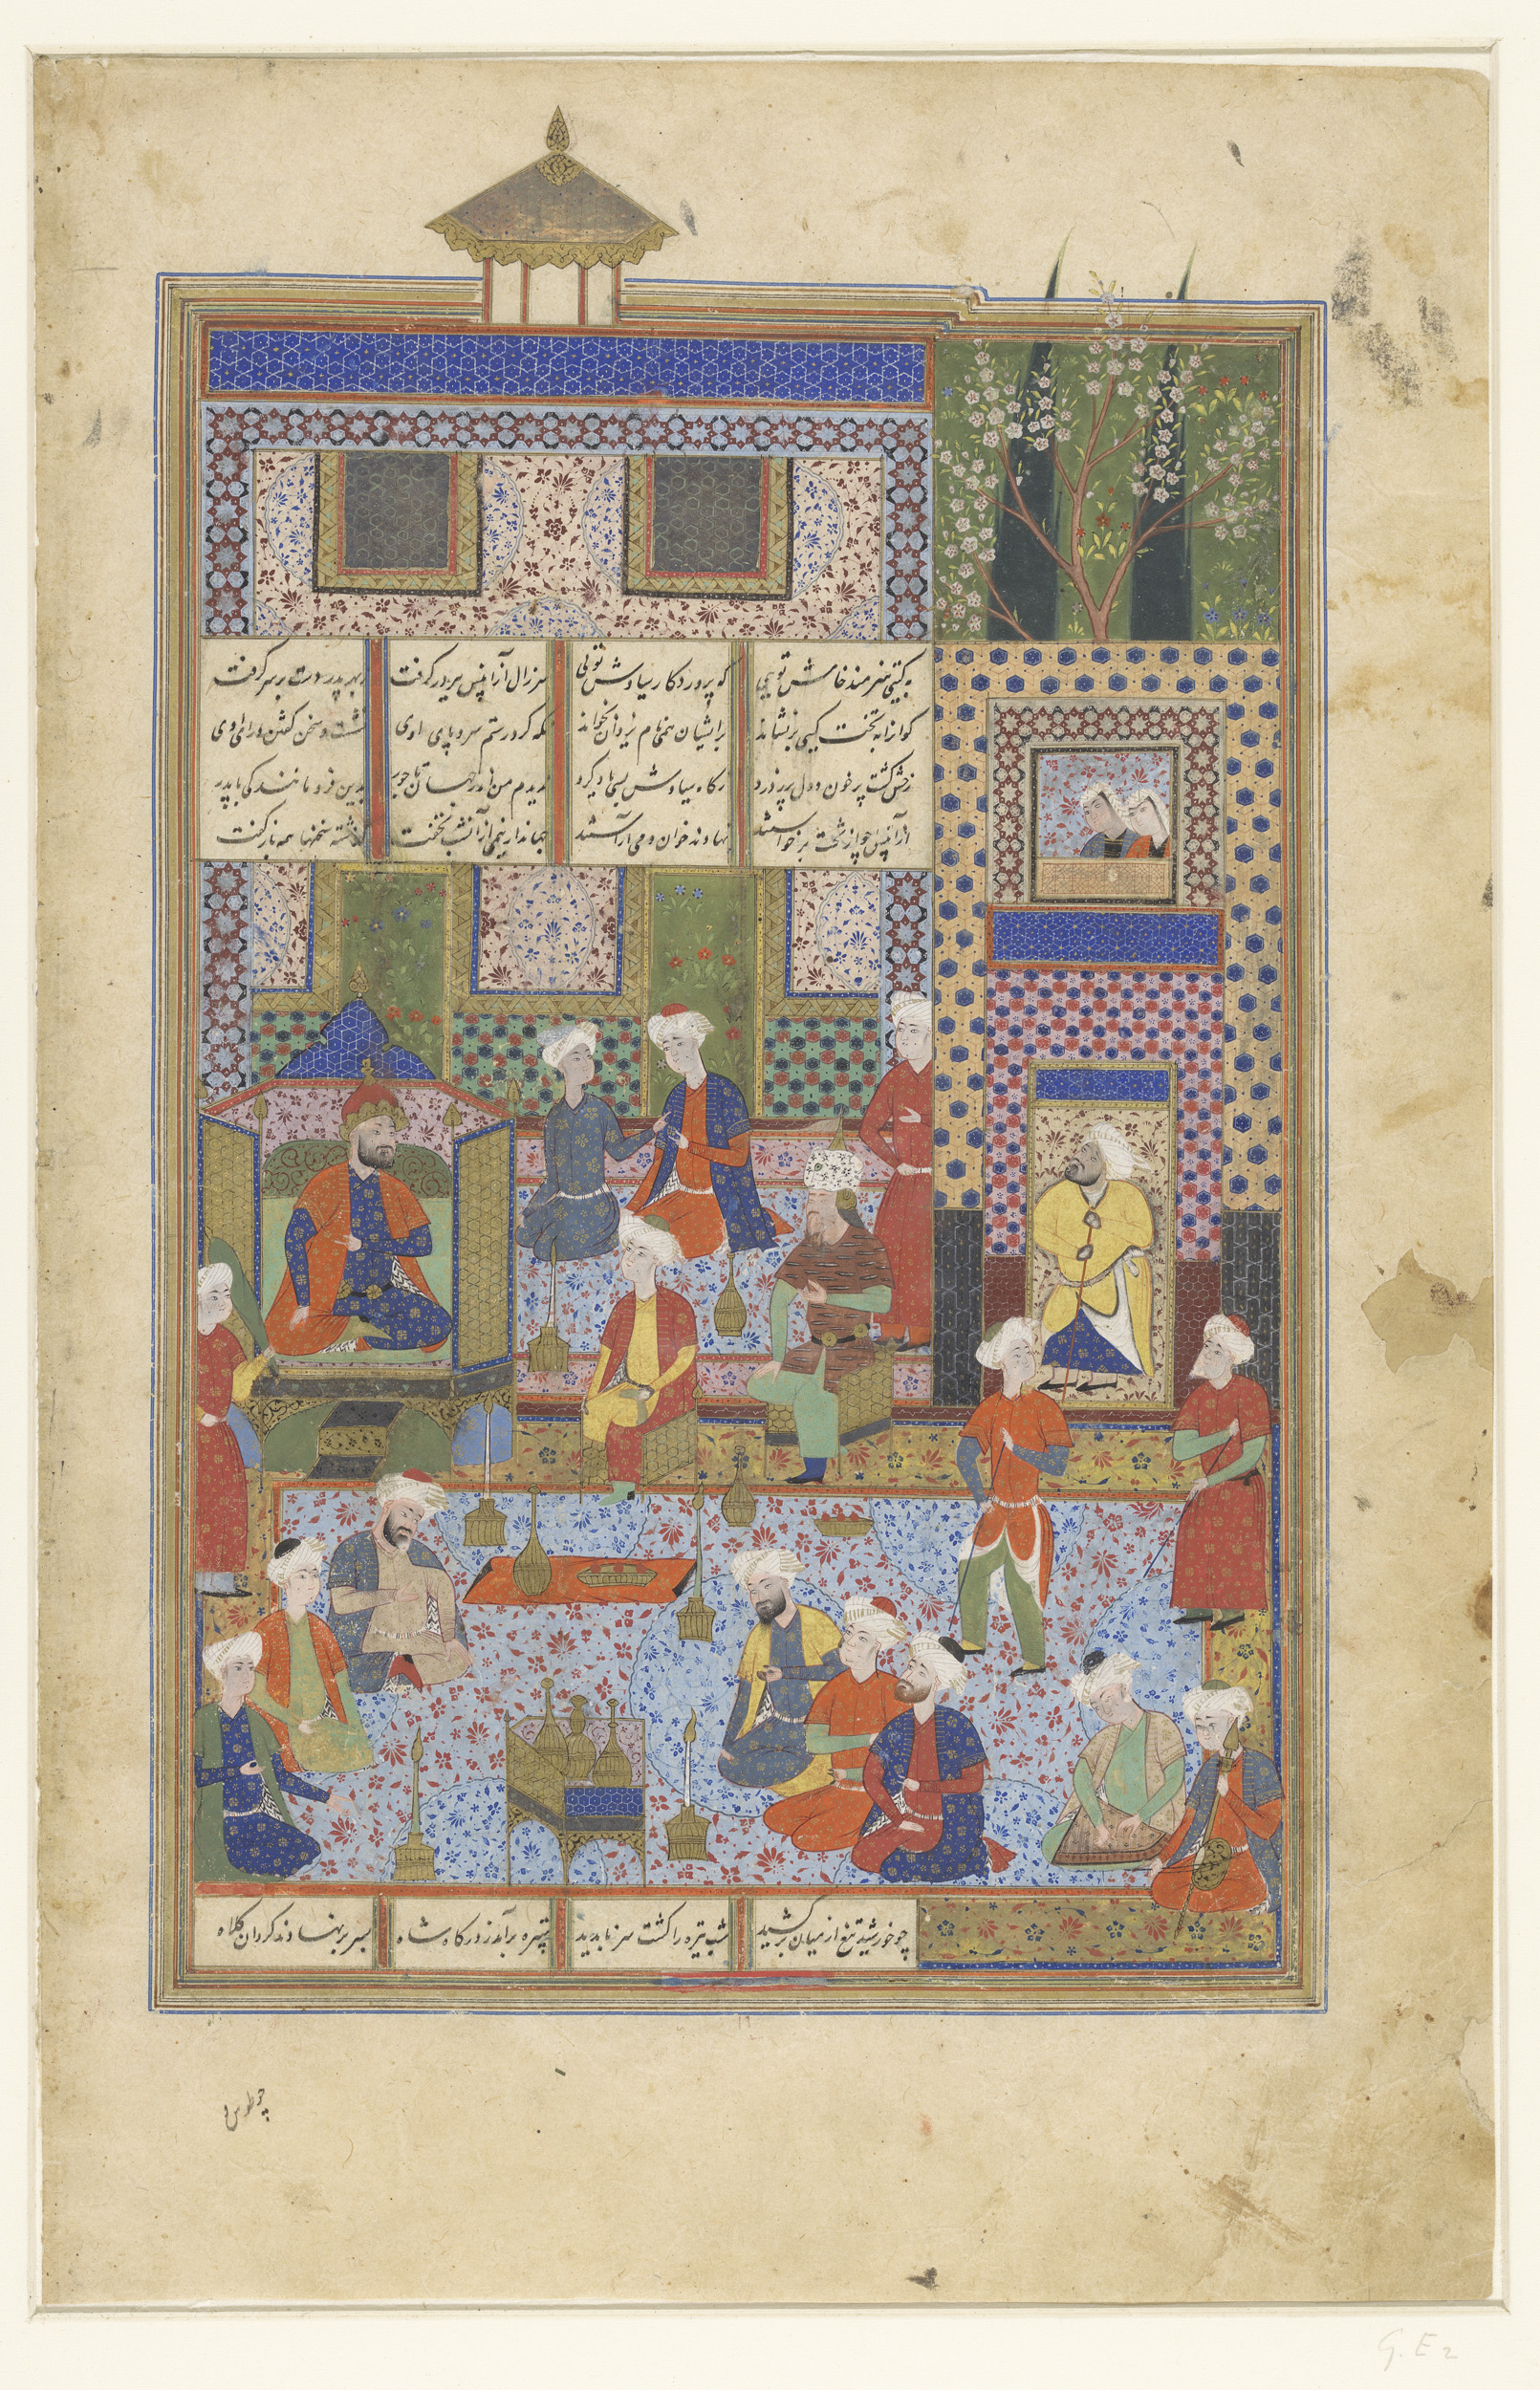 به کیتی هنرمند خامش تویی که پروردکار سیاوش تویی سر زال از آن پس ببر در کرفت ز بهر پدر دست بر سر کرفت
کوانرا به تخت کیی برنشاند بر ایشان همی نام یزدان بخواند نکه کرد رستم سر و پای اوی نشست و سخن کفتن و رای اوی
رخش کشت پر خون و دل پر ز درد ز کار سیاوش بسی یاد کرد ندیدم من اندر جهان تاجور بدین فر و مانندکی با پدر
از آن پس چو از تخت برخواستند نهادند خوان و می آراستند جهاندار نیمی از آن شب نخفت کذشته سخنها همه باز کفت
چو خورشید تیغ از میان برکشید شب تیره را کشت سر ناپدید تبیره برآمد ز درکاه شاه بسر بر نهادند کردان کلاه
چو طوس و
G. E 2